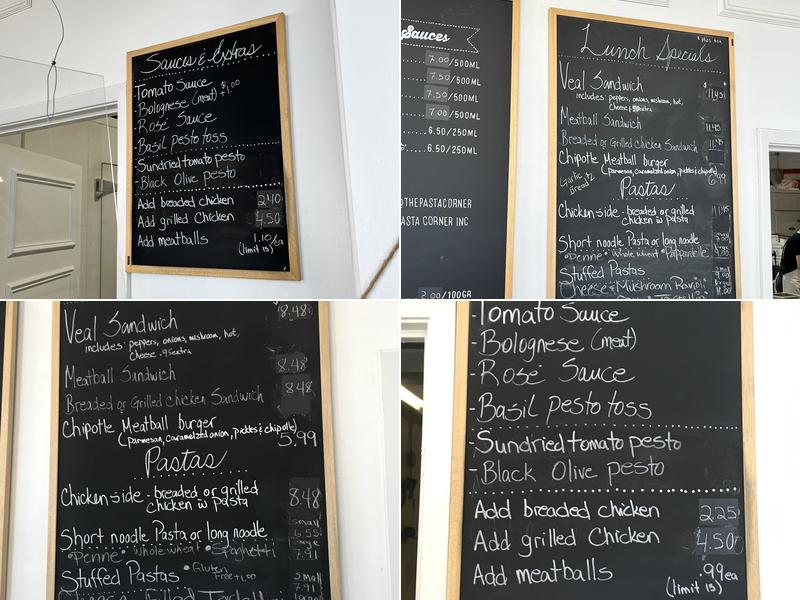 Sauces & Extras
-Tomato Sauce
-Bolognese (meat) $+1.00
-Rosé Sauce
-Basil Pesto toss
-Sundried tomato pesto
-Black Olive pesto
Add breaded chicken 2.40
Add grilled Chicken 4.50
Add meatballs 1.10/ea
(limit 15)
Sauces
7.00/500ML
7.50/500ML
7.50/500ML
7.00/500ML
6.50/250ML
6.50/250ML
@THEPASTACORNER
ASTA CORNER INC
2.00/100GR
Lunch Specials
Veal Sandwich 11.45
includes: peppers, onions, mushroom, hot,
Cheese
Meatball Sandwich 11.45
Breaded or Grilled chicken Sandwich 11.45
Chipotle Meatball burger
(parmesan, caramelized onion, pickles & chipotle)
6.99
Garlic Bread $2
Pastas
Chicken-side - breaded or grilled
chicken w pasta
Short noodle Pasta or long noodle
•Penne •Whole wheat •Pappardelle
Stuffed Pastas
Cheese & Mushroom Ravioli
Veal Sandwich 8.48
includes: peppers, onions, mushroom, hot,
cheese .95 extra
Meatball Sandwich 8.48
Breaded or Grilled chicken Sandwich 8.48
Chipotle Meatball burger
(parmesan, caramelized onion, pickles & chipotle)
5.99
Pastas
Chicken-side - breaded or grilled
chicken w pasta 8.48
Short noodle Pasta or long noodle small 6.55
•Penne •Whole wheat •Spaghetti large 7.91
•Gluten Free +1.00
Stuffed Pastas small 7.91
Cheese Filled Tortellini large
-Tomato Sauce
-Bolognese (meat)
-Rosé Sauce
-Basil Pesto toss
-Sundried tomato pesto
-Black Olive pesto
Add breaded chicken 2.25
Add grilled Chicken 4.50
Add meatballs .99ea
(limit 15)